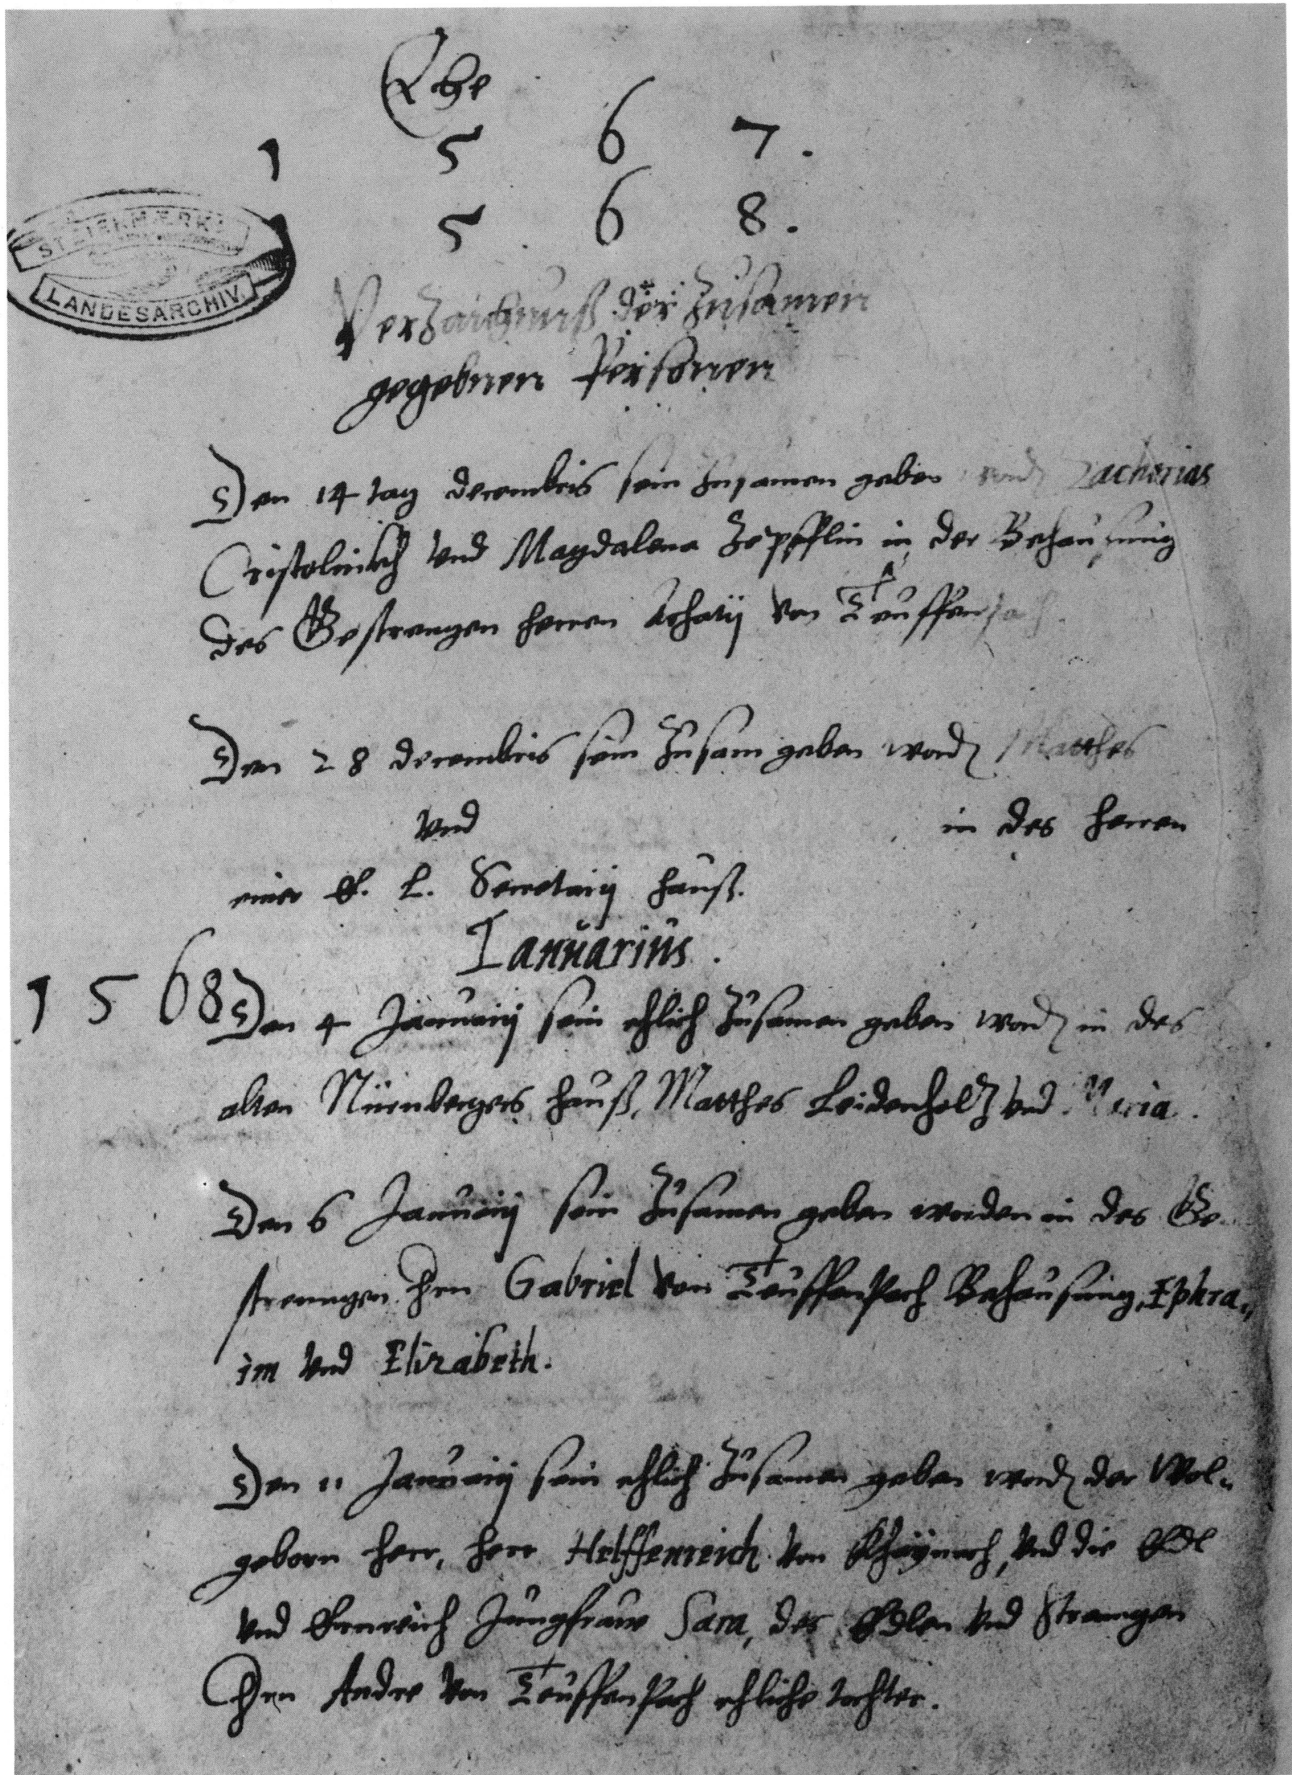 Ehe
1 5 6 7.
5 6 8.
STEIERMÆRK.
LANDESARCHIV.
Verzaichnuß der Zusamen
gegebnen Personen
Den 14 tag decembris sein Zusamen geben word Zacherias
Cristolnick vnd Magdalena Zepfflin in der Behausung
des Gestrengen herren Achatij von Teuffenpach.
Den 28 decembris sein Zusam geben word Matthes
vnd in des herren
einer E. L. Secretarij hauß.
Ianuarius.
1568 Den 4 Januarij sein ehlich Zusamen geben word in des
alten Nürnbergers hauß, Matthes Leidenholz vnd Maria.
Den 6 Januarij sein Zusamen geben worden in des Ge-
strenngen Hrn Gabriel von Teuffenpach Behausung, Ephra-
im vnd Elizabeth.
Den 11 Januarij sein ehlich Zusamen geben word der Wol-
geborn herr, herr Helffenreich von Khaynach, vnd die Edl
vnd Ernreich Jungfraw Sara, des Edlen vnd Strenngen
Hrn Andre von Teuffenpach ehliche tochter.